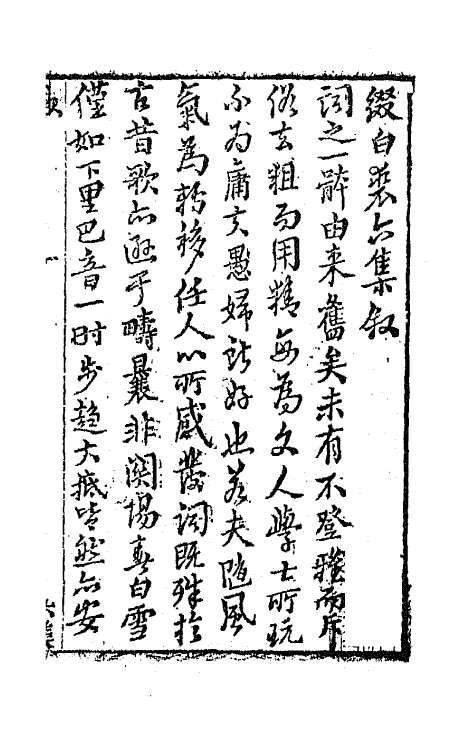 綴白裘六集叙
詞之一體由来舊矣未有不登雅而斥
俗去粗而用精每為文人學士所玩
不为庸夫愚婦所好也若夫随風
氣為轉移任人心所感發詞既殊於
古昔歌亦遜乎疇曩非関陽春白雪
僅如下里巴音一时步趋大抵皆然亦安